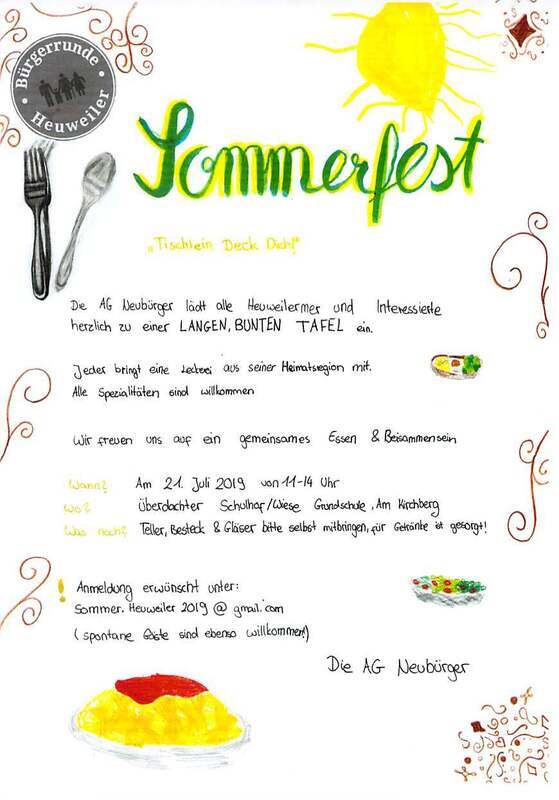 Bürgerrunde
Heuweiler
Sommerfest
„Tischlein Deck Dich!"
Die AG Neubürger lädt alle Heuweilermer und Interessierte
herzlich zu einer LANGEN, BUNTEN TAFEL ein.
Jedes bringt eine Leckrei aus seiner Heimatsregion mit.
Alle Spezialitäten sind willkommen
Wir freuen uns auf ein gemeinsames Essen & Beisammensein
Wann? Am 21. Juli 2019 von 11-14 Uhr
Wo? Überdachter Schulhof/Wiese Grundschule, Am Kirchberg
Was noch? Teller, Besteck & Gläser bitte selbst mitbringen, für Getränke ist gesorgt!
! Anmeldung erwünscht unter:
Sommer.Heuweiler2019@gmail.com
(spontane Gäste sind ebenso willkommen!)
Die AG Neubürger